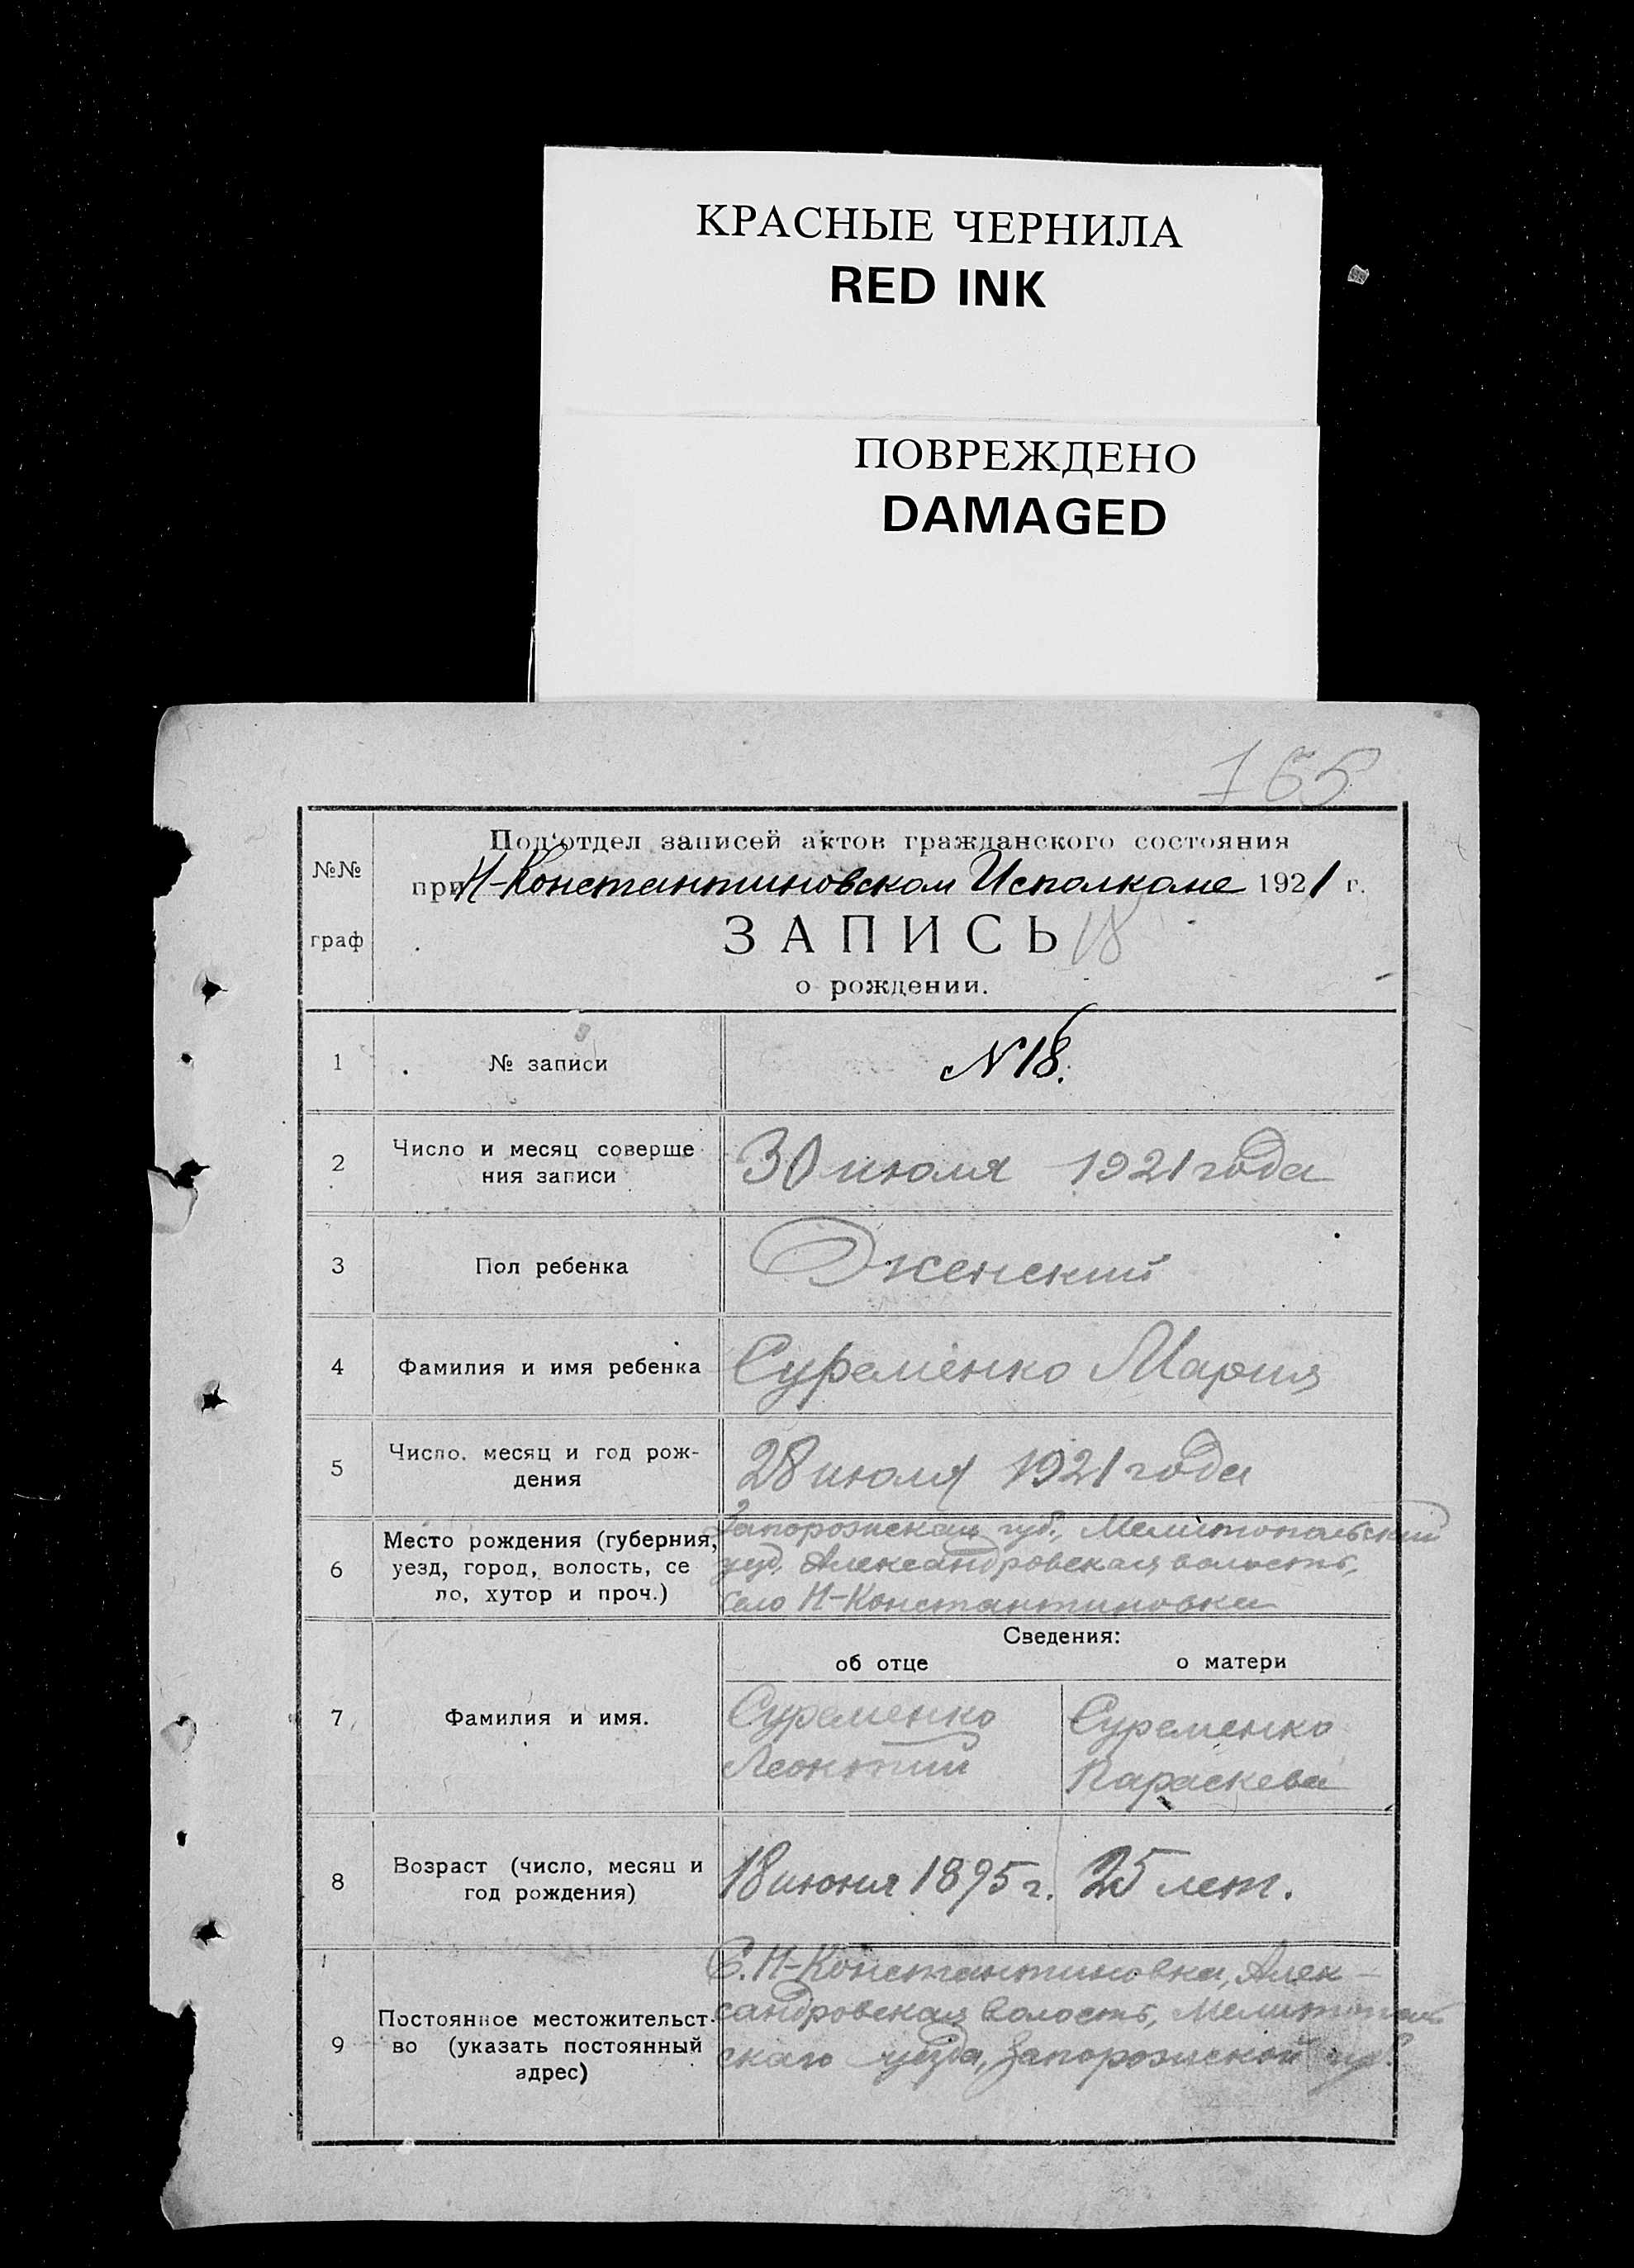 КРАСНЫЕ ЧЕРНИЛА
RED INK
ПОВРЕЖДЕНО
DAMAGED
165
№№
граф
Под'отдел записей актов гражданского состояния
при Н-Константиновском Исполкоме 1921 г.
ЗАПИСЬ 18
о рождении.
1 № записи N 18.
2 Число и месяц соверше
ния записи 30 июля 1921 года
3 Пол ребенка Женский
4 Фамилия и имя ребенка Суременко Мария
5 Число, месяц и год рож-
дения 28 июля 1921 года
6 Место рождения (губерния,
уезд, город, волость, се
ло, хутор и проч.)
Запорожская губ., Мелитопольский
уезд, Александровская волость,
село Н-Константиновка
Сведения:
об отце о матери
7 Фамилия и имя.
Суременко
Леонтий
Суременко
Параскева
8 Возраст (число, месяц и
год рождения) 18 июня 1895 г. 25 лет.
9 Постоянное местожительст-
во (указать постоянный
адрес)
С. Н-Константиновка, Алек-
сандровская волость, Мелитополь
скаго уезда, Запорожской губ.